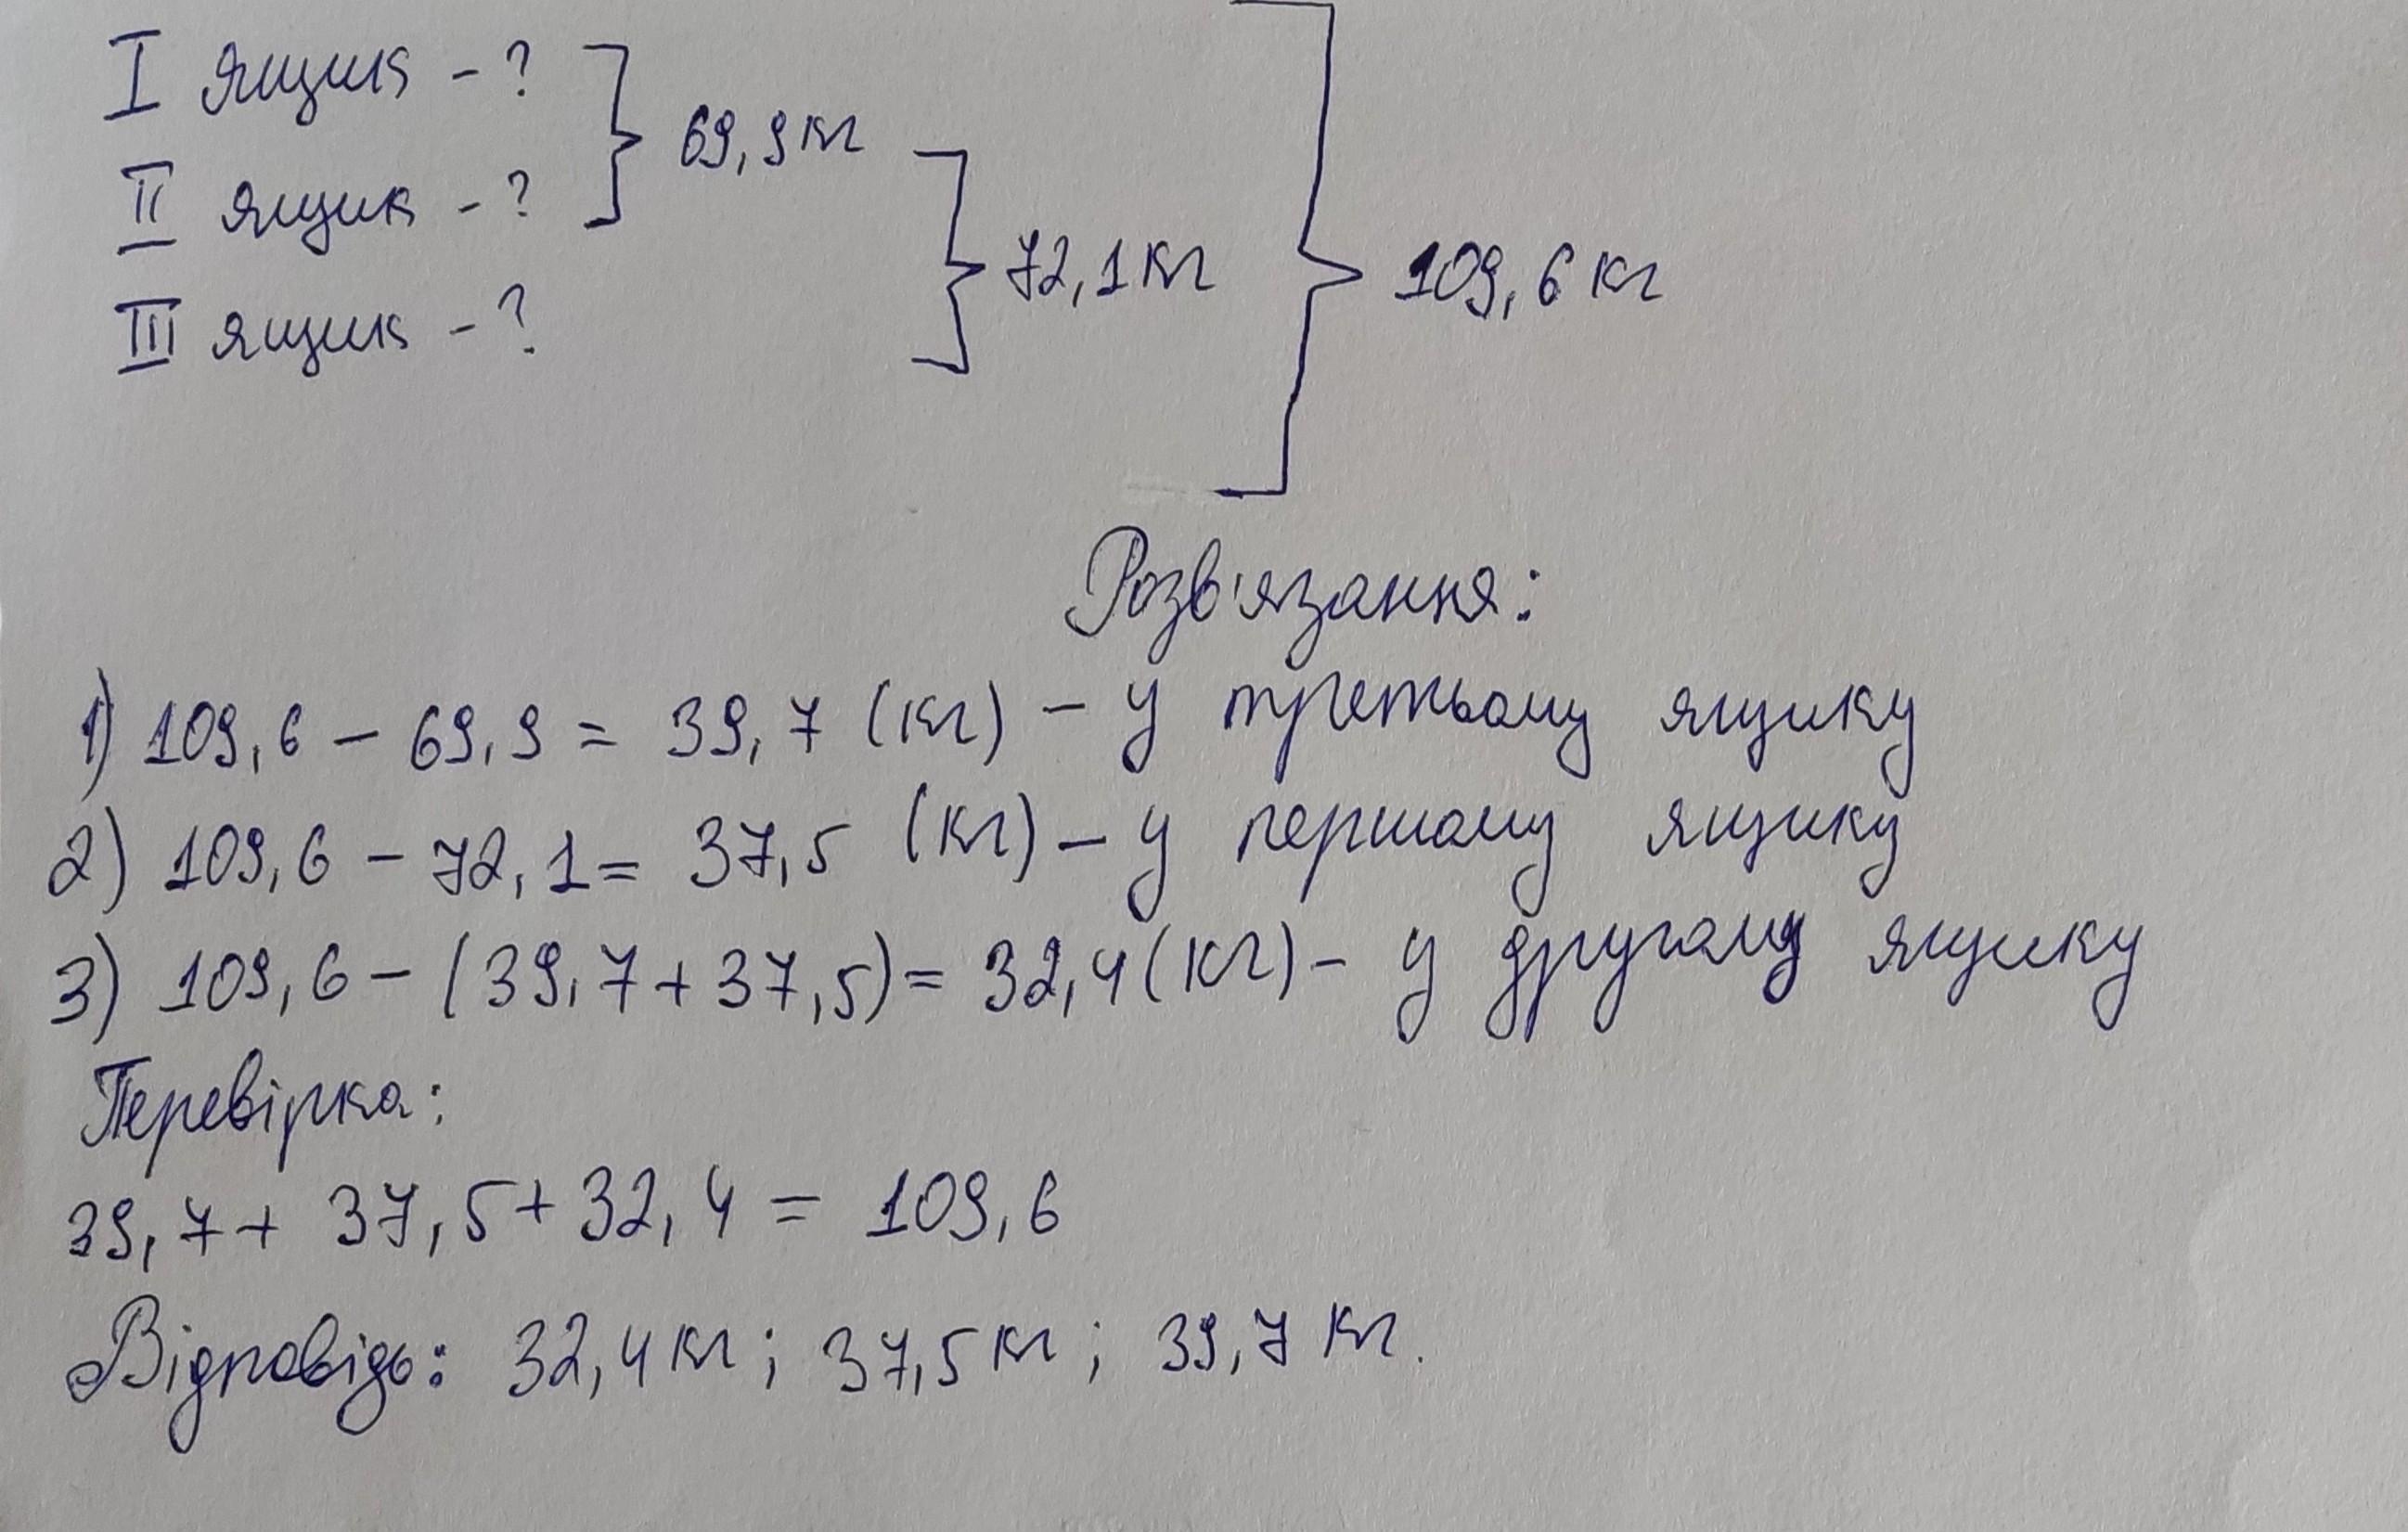 I ящик - ?
69,9 кг
II ящик - ?
72,1 кг
109,6 кг
III ящик - ?
Розв'язання:
1) 109,6 - 69,9 = 39,7 (кг) - у третьому ящику
2) 109,6 - 72,1 = 37,5 (кг) - у першому ящику
3) 109,6 - (39,7 + 37,5) = 32,4 (кг) - у другому ящику
Перевірка:
39,7 + 37,5 + 32,4 = 109,6
Відповідь: 32,4 кг; 37,5 кг; 39,7 кг.